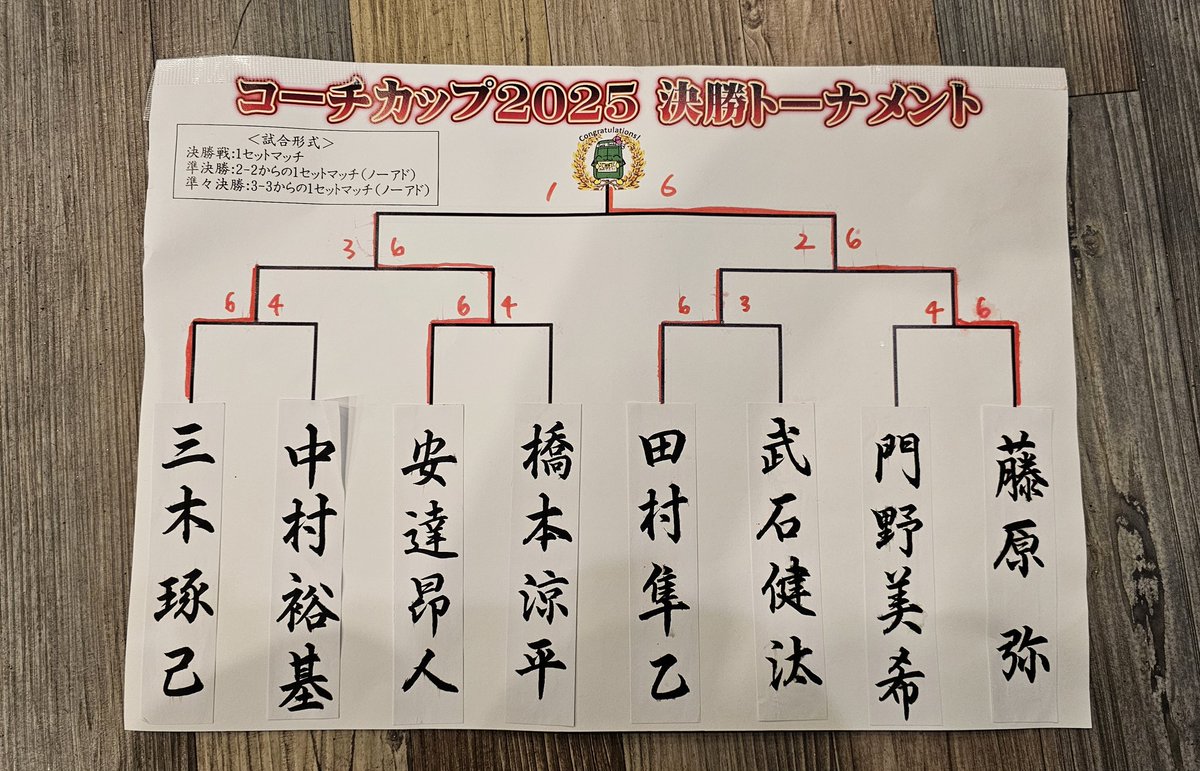 コーチカップ2025 決勝トーナメント
Congratulations!
<試合形式>
決勝戦:1セットマッチ
準決勝:2-2からの1セットマッチ(ノーアド)
準々決勝:3-3からの1セットマッチ(ノーアド)
1 6
3 6 2 6
6 4 6 4 6 3 4 6
三木琢己
中村裕基
安達昂人
橋本涼平
田村隼乙
武石健汰
門野美希
藤原弥